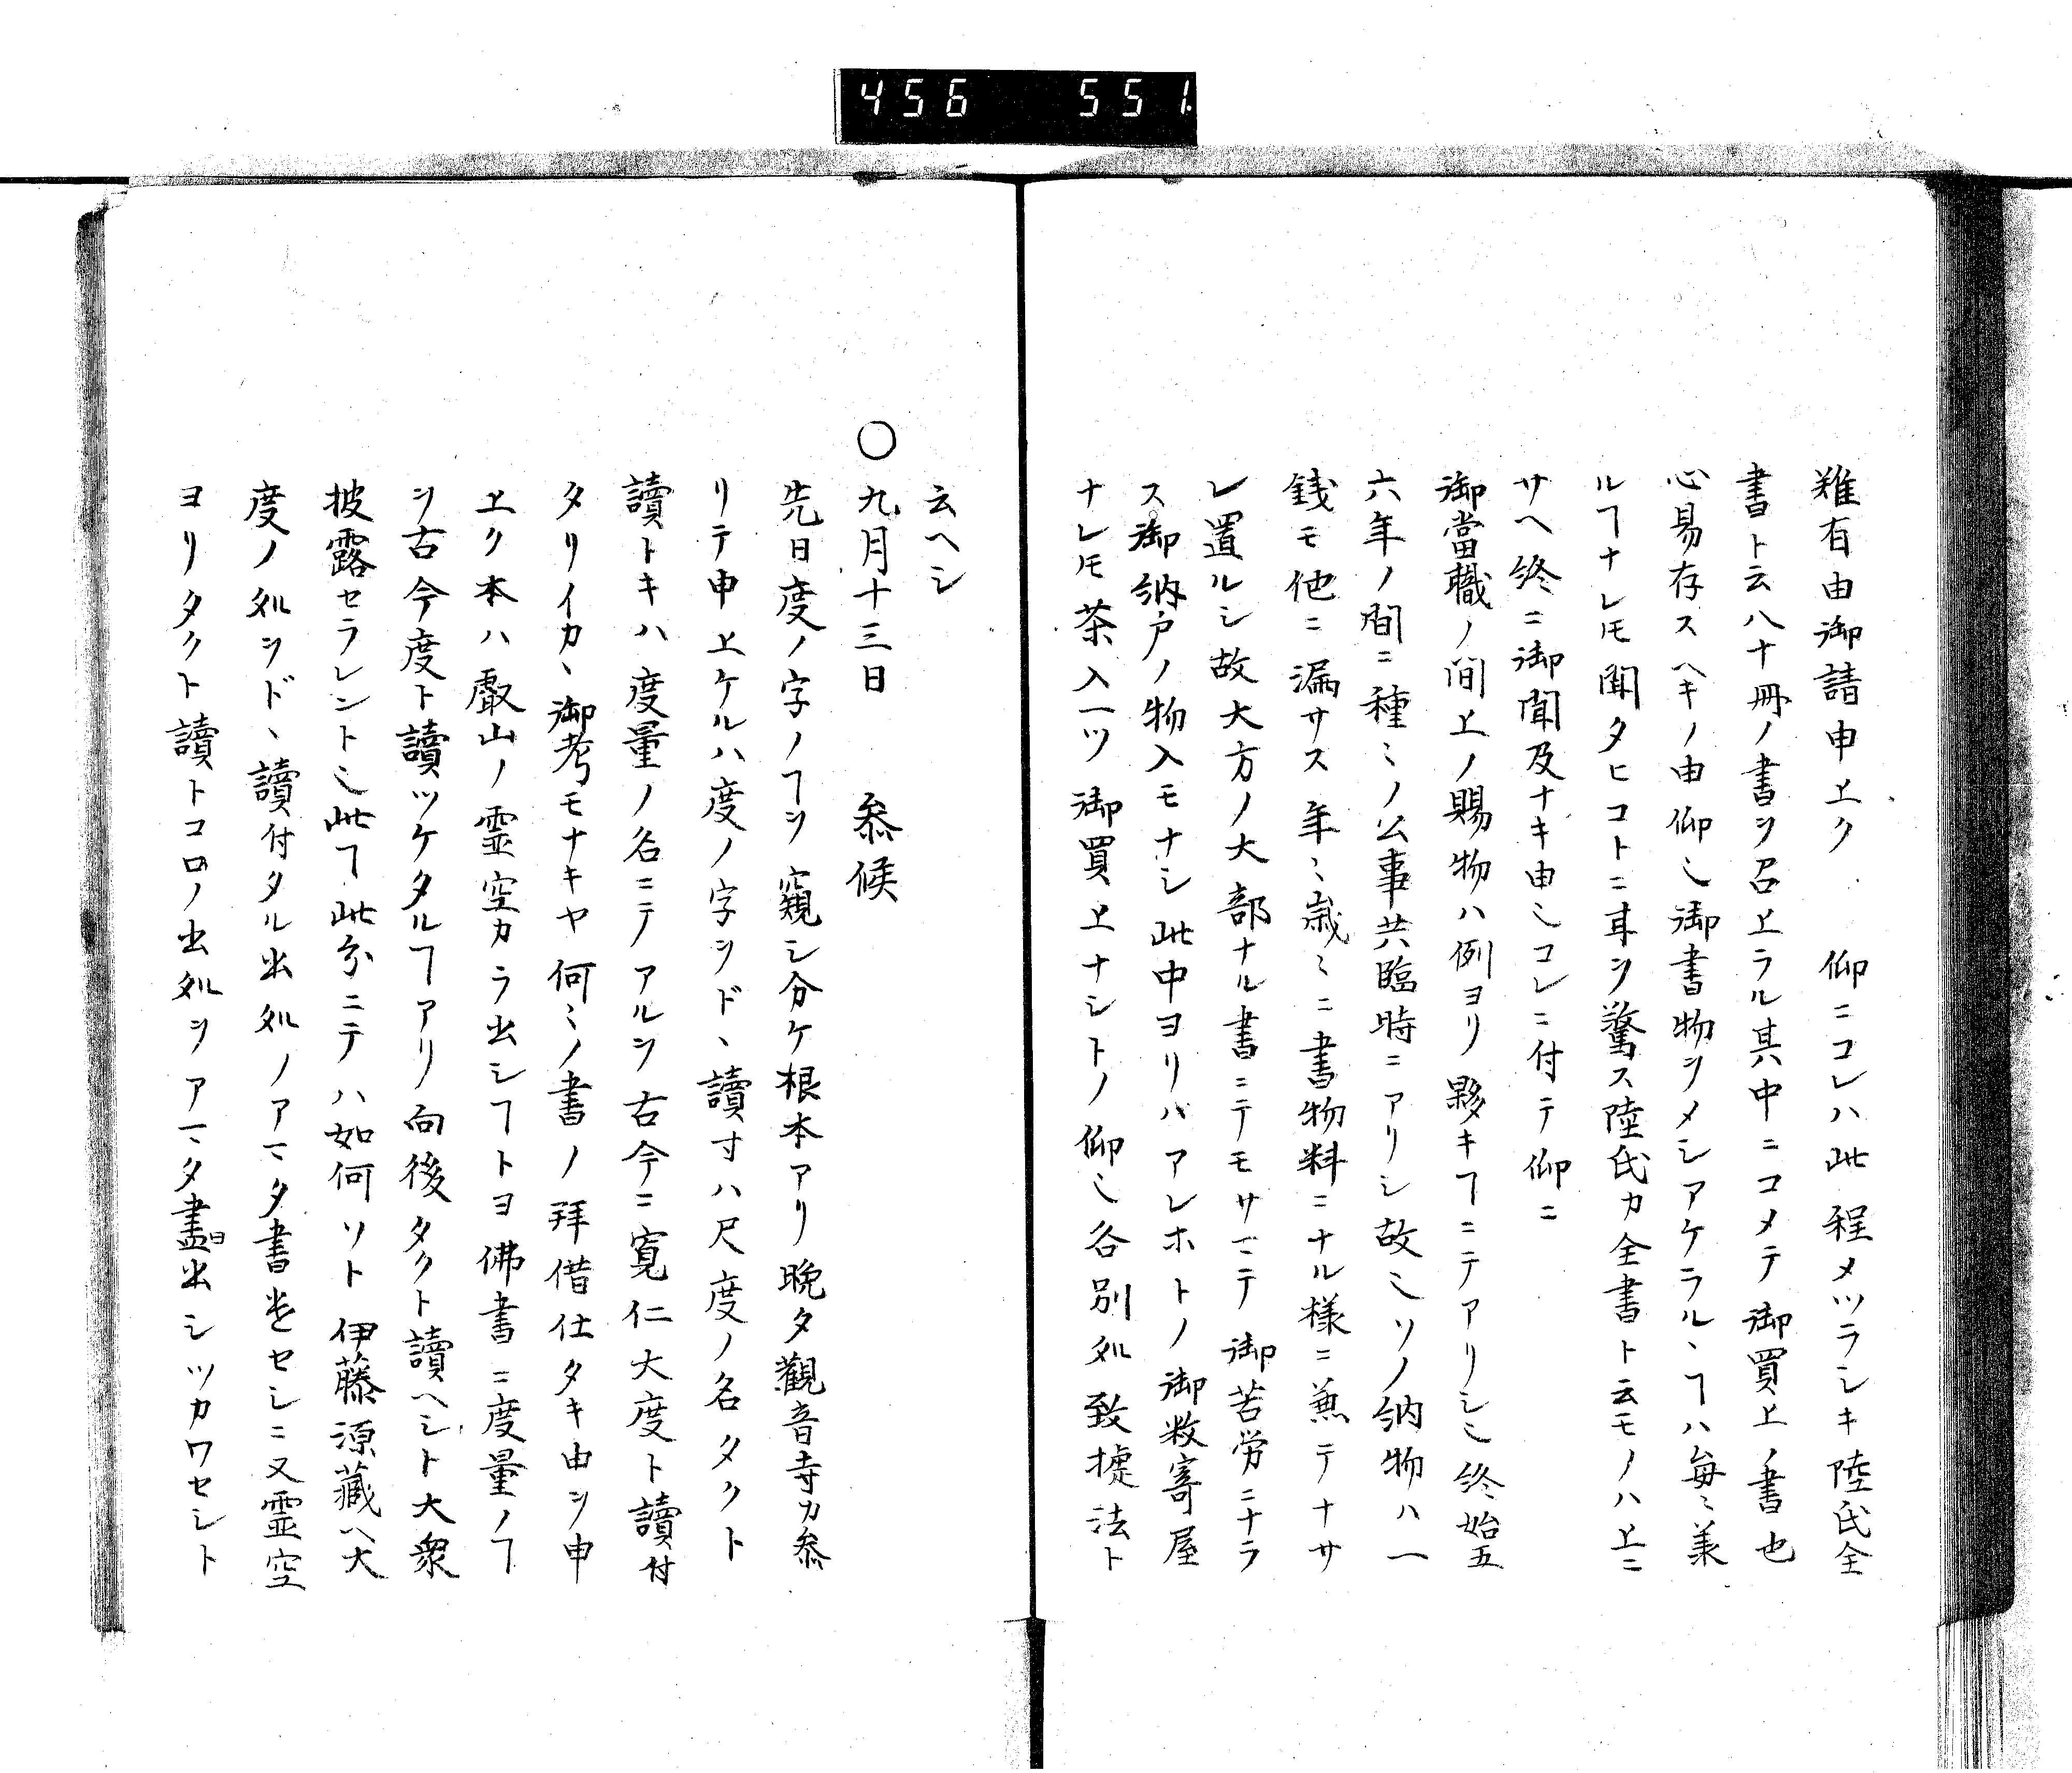 456 551.
難有由御請申上ク 仰ニコレハ此程メツラシキ陸氏全
書ト云八十冊ノ書ヲ召上ラル其中ニコメテ御買上ノ書也
心易存スヘキノ由仰也御書物ヲメシアケラルヽヿハ毎〻美
ルヿナレ𪜈聞タヒコトニ耳ヲ驚ス陸氏カ全書ト云モノハ上ニ
サヘ終ニ御聞及ナキ由也コレニ付テ仰ニ
御當職ノ間上ノ賜物ハ例ヨリ夥キヿニテアリシ也終始五
六年ノ間ニ種〻ノ公事共臨時ニアリシ故也ソノ納物ハ一
銭モ他ニ漏サス年〻歳〻ニ書物料ニナル様ニ兼テナサ
レ置ルシ故大方ノ大部ナル書ニテモサマテ御苦労ニナラ
ス御納戸ノ物入モナシ此中ヨリハアレホトノ御数寄屋
ナレ𪜈茶入一ツ御買上ナシトノ仰也各別処致據法ト
云ヘシ
〇九月十三日 参候
先日度ノ字ノヿヲ窺シ分ケ根本アリ晩夕觀音寺カ参
リテ申上ケルハ度ノ字ヲド、讀寸ハ尺度ノ名タクト
讀トキハ度量ノ名ニテアルヲ古今ニ寛仁大度ト讀付
タリイカヽ御考モナキヤ何〻ノ書ノ拜借仕タキ由ヲ申
上ク本ハ叡山ノ霊空カラ出シヿトヨ佛書ニ度量ノヿ
ヲ古今度ト讀ツケタルヿアリ向後タクト讀ヘシト大衆
披露セラレント也此ヿ此分ニテハ如何ソト伊藤源藏ヘ大
度ノ処ヲド、讀付タル出処ノアマタ書をセシニ又霊空
ヨリタクト讀トコロノ出処ヲアマタ書出シツカワセシト